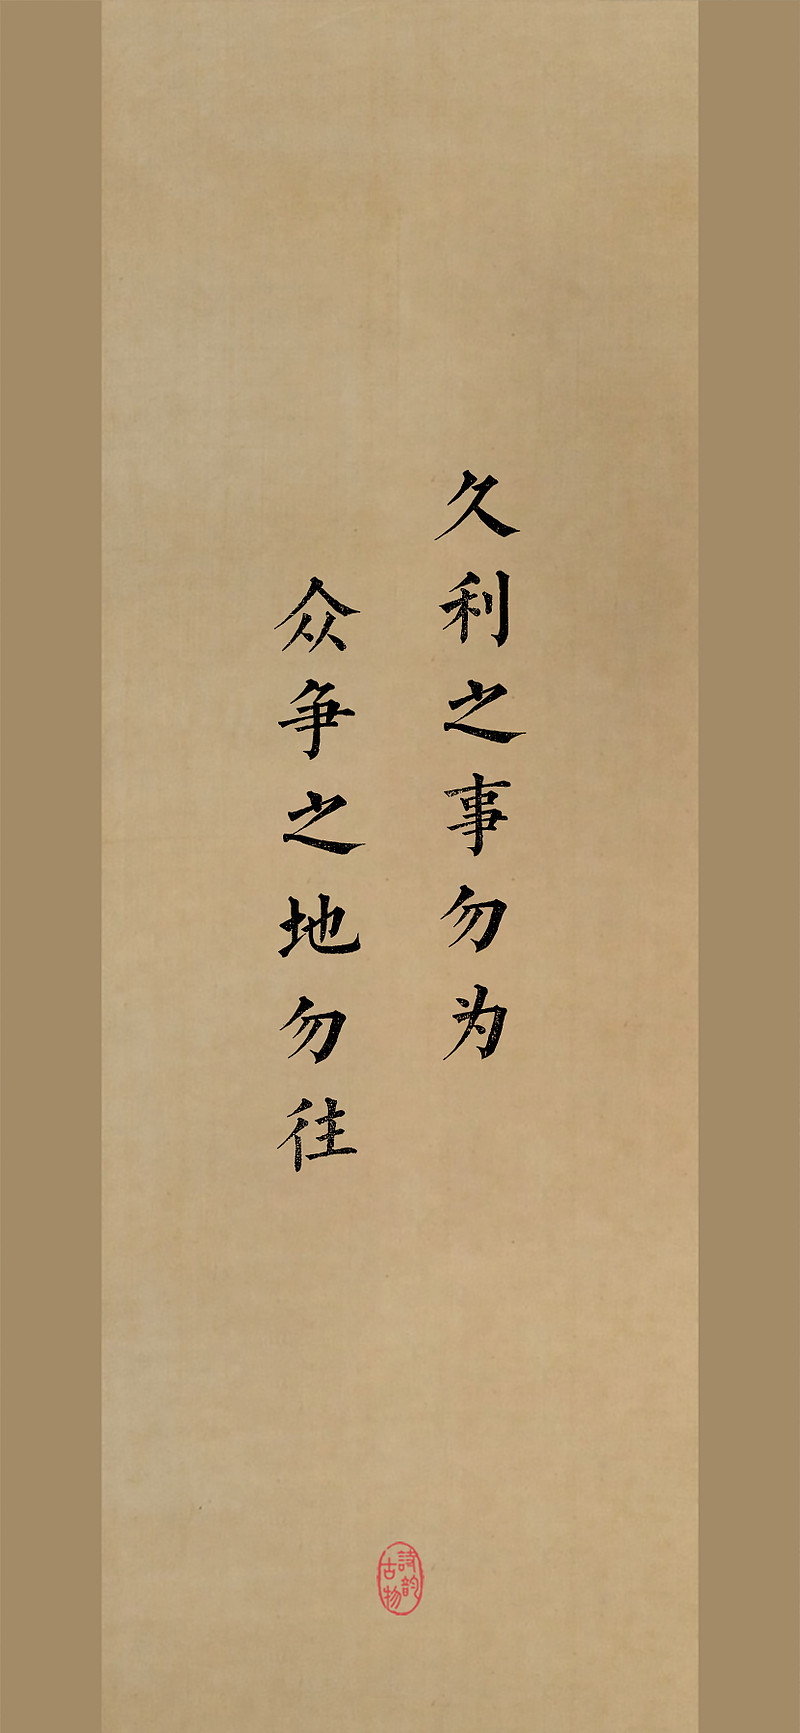 久利之事勿为
众争之地勿往
詩韵
古物